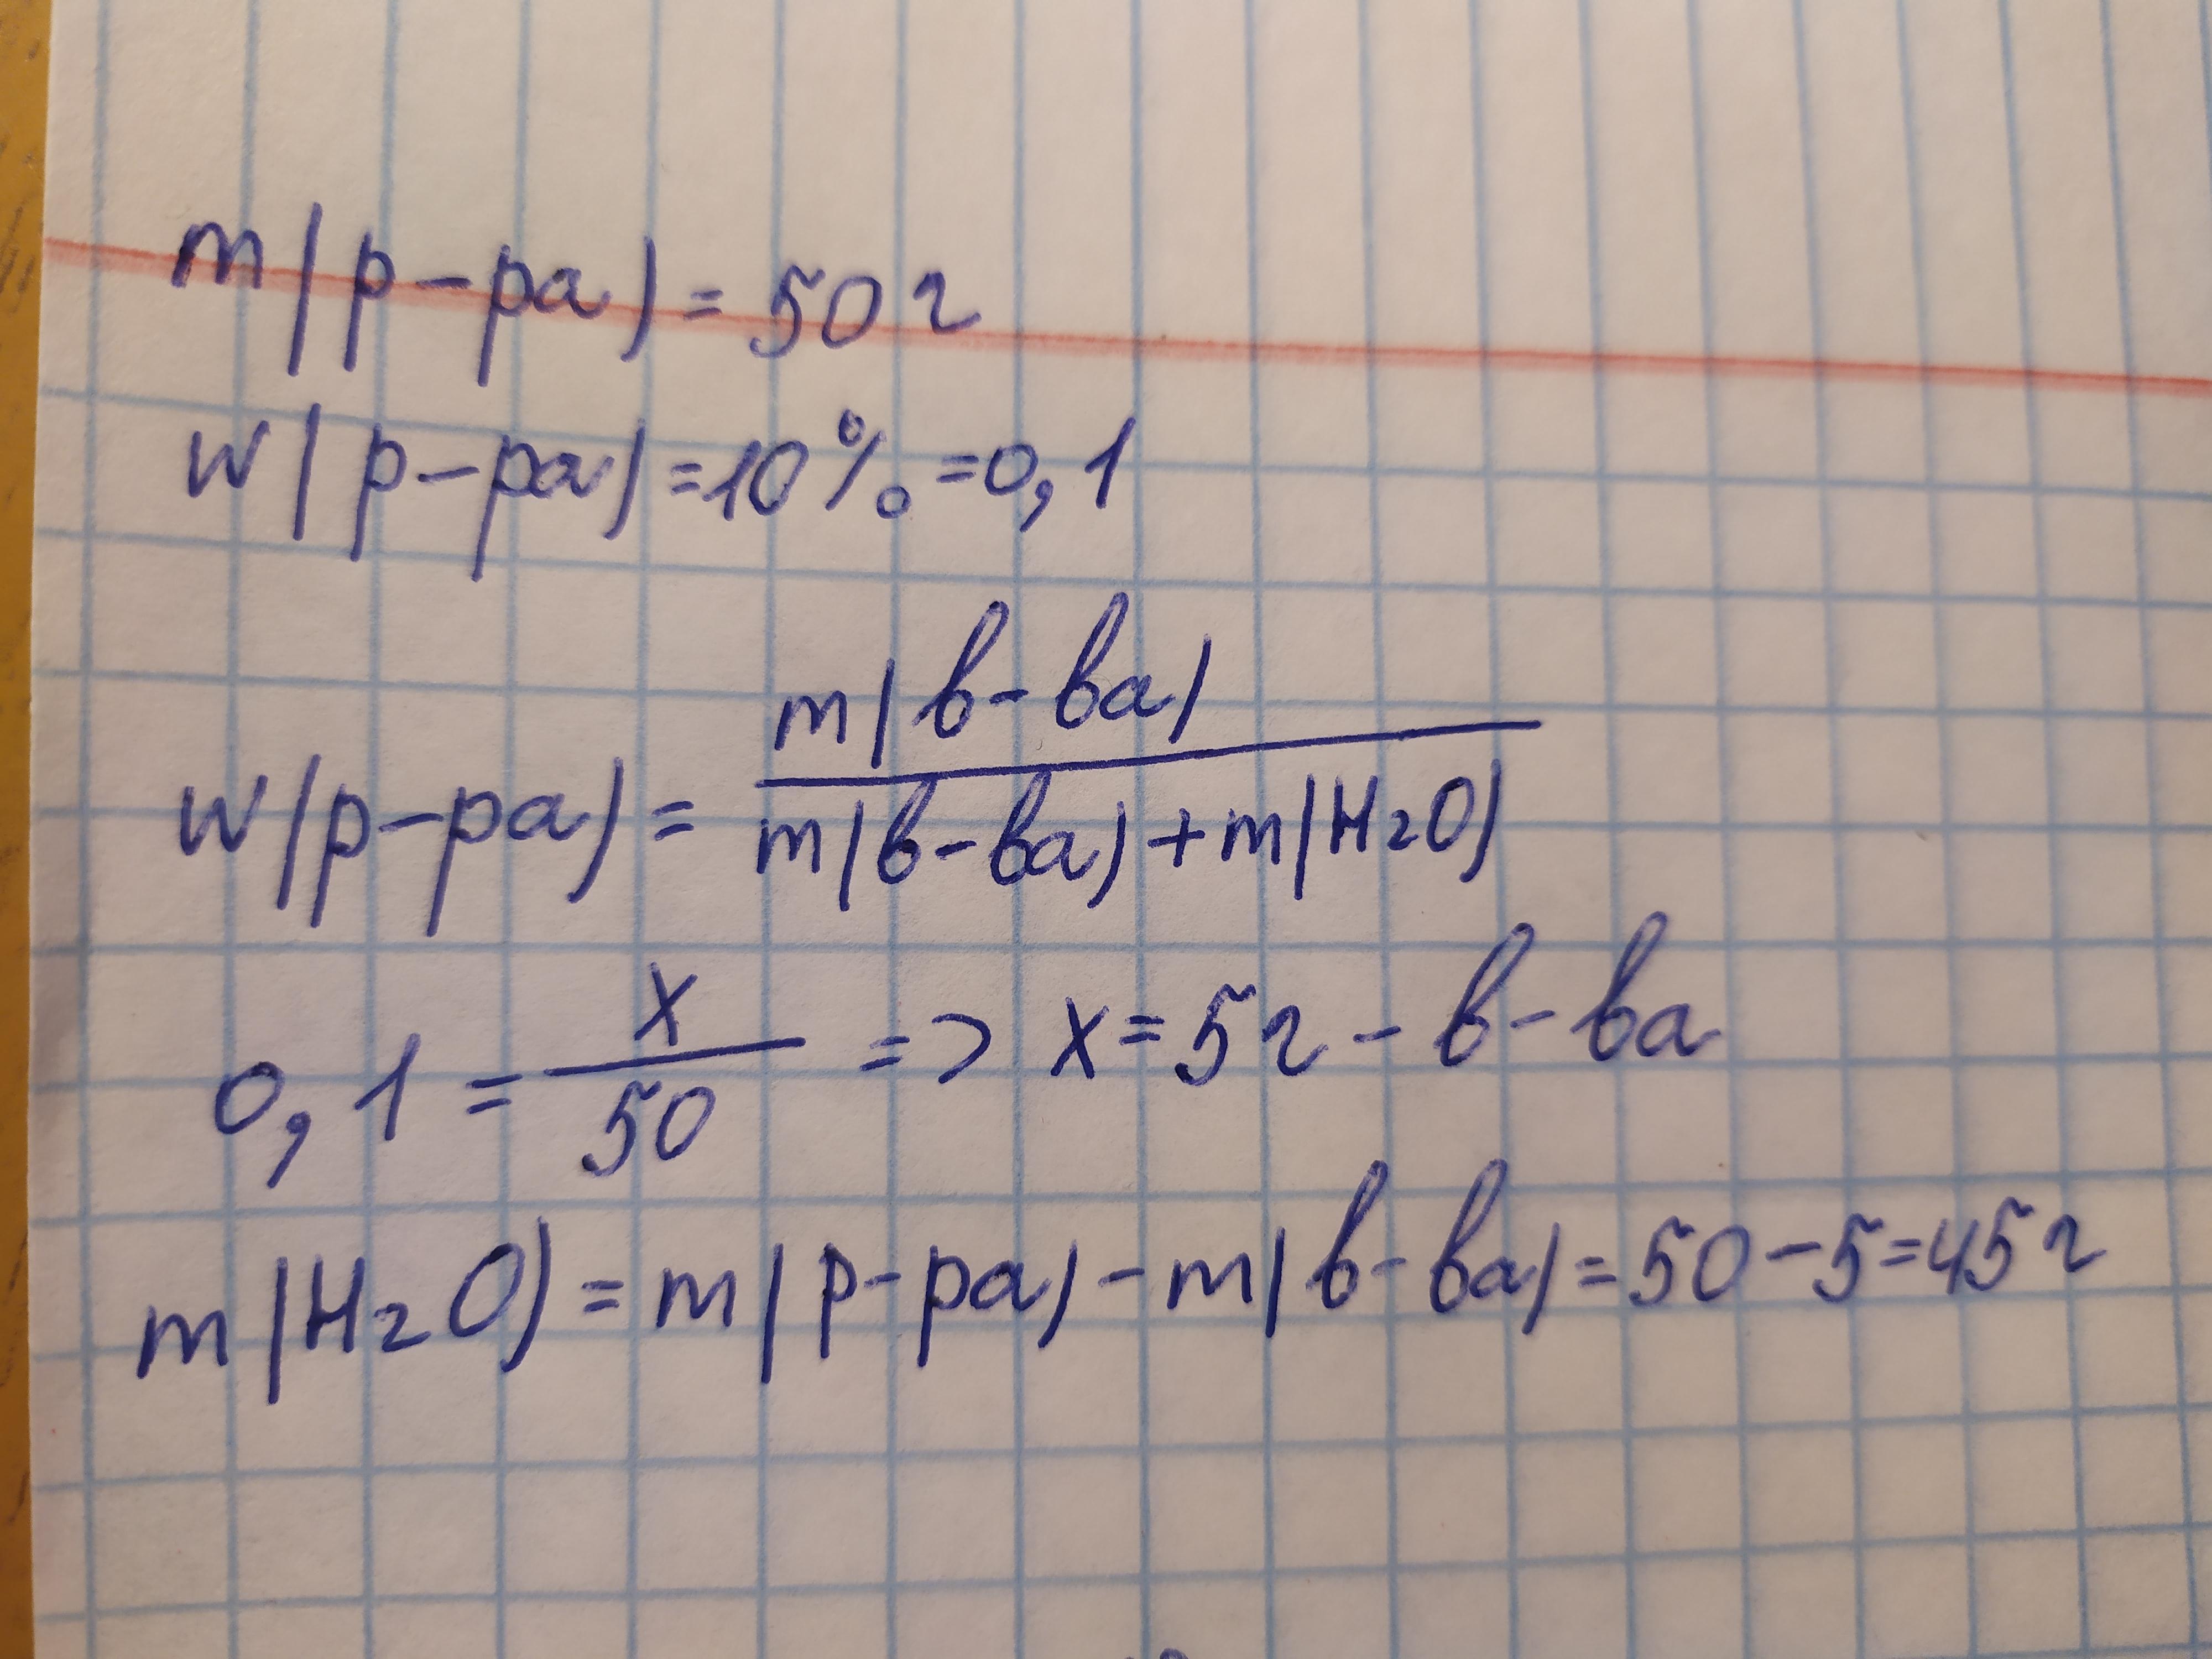 m(р-ра) = 50 г
w(р-ра) = 10% = 0,1
w(р-ра) = m(в-ва) / m(в-ва) + m(H2O)
0,1 = x / 50 => x = 5 г - в-ва
m(H2O) = m(р-ра) - m(в-ва) = 50 - 5 = 45 г